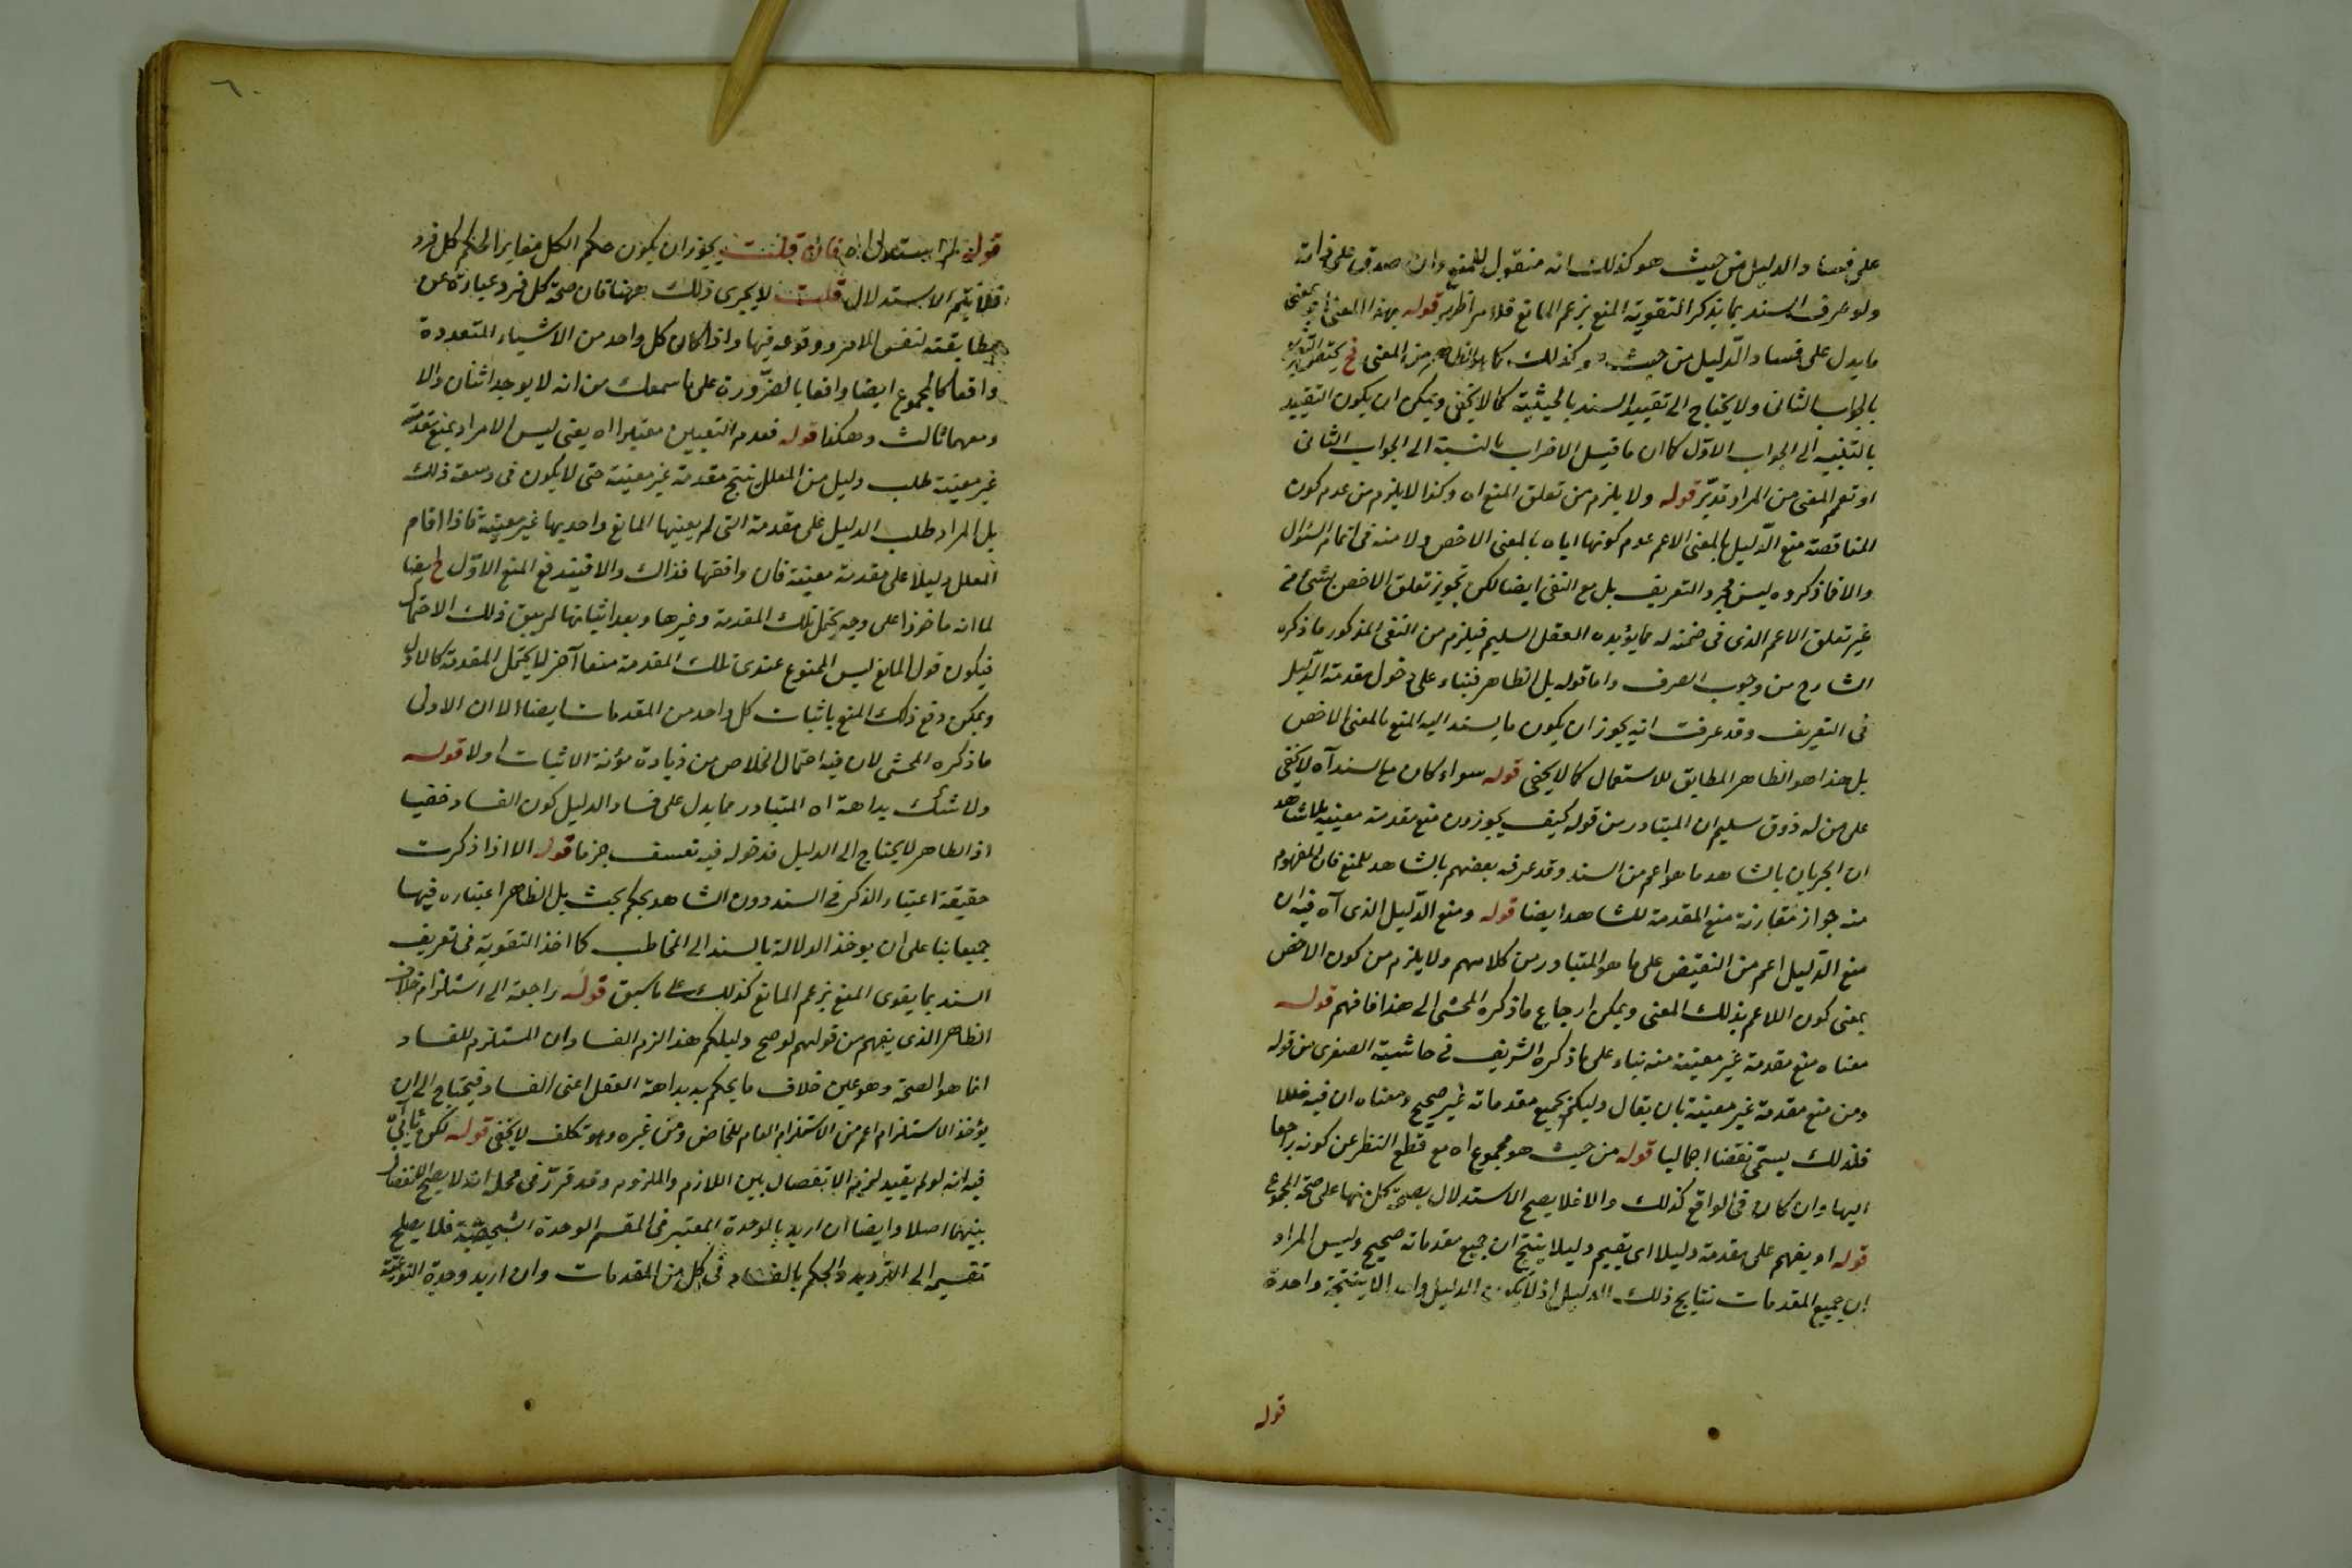 على فساد الدليل من حيث هو كذلك انه منقول للمنع وان صدق على ذاته
ولو عرف السند بما يذكر لتقوية المنع بزعم المانع فلا قوله بهذا المعنى اى بمعنى
ما يدل على فساد الدليل من حيث هو كذلك كما هو الظاهر من المعنى فح يختص
بالجواب الثانى ولا يحتاج الى تقييد السند بالحيثية كما لا يخفى ويمكن ان يكون التقييد
بالنسبة الى الجواب الاول كما ان ما قيل الاقراب بالنسبة الى الجواب الثانى
او تعم المعنى من المراد تدبر قوله ولا يلزم من تعلق المنع اه وكذا لا يلزم من عدم كون
المناقضة منع الدليل بالمعنى الاعم عدم كونها اياه بالمعنى الاخص ولا منه فى اتمام السؤال
والا فما ذكروه ليس مجرد التعريف بل مع النفى ايضا لكن تجويز تعلق الاخص بشئ من
غير تعلق الاعم الذى فى ضمنه له مما يؤيده العقل السليم فيلزم من النفى المذكور ما ذكره
الشارح من وجوب الصرف واما قوله بل الظاهر فبناء على دخول مقدمة الدليل
فى التعريف وقد عرفت انه يجوز ان يكون ما يستند اليه المنع بالمعنى الاخص
بل هذا هو الظاهر المطابق للاستعمال كما لا يخفى قوله سواء كان مع السند آه لا يخفى
على من له ذوق سليم ان المتبادر من قوله كيف يجوزون منع مقدمة معينة بلا شاهد
ان الجريان بالشاهد ما هو اعم من السند وقد عرفه بعضهم بالشاهد للمنع فان المفهوم
منه جواز مقارنة منع المقدمة للشاهد ايضا قوله ومنع الدليل الذى آه فيه ان
منع الدليل اعم من النقيض على ما هو المتبادر من كلامهم ولا يلزم من كون الاخص
بمعنى كون الاعم بذلك المعنى ويمكن ارجاع ما ذكره المحشى الى هذا فافهم قوله
معناه منع مقدمة غير معينة منه بناء على ما ذكره الشريف فى حاشية الصغرى من قوله
ومن منع مقدمة غير معينة بان يقال دليلكم بجميع مقدماته غير صحيح ومعناه ان فيه خللا
فلذلك يسمى نقضا اجماليا قوله من حيث هو مجموع اه مع قطع النظر عن كونه راجعا
اليها وان كان فى الواقع كذلك والا فلا يصح الاستدلال بصحة كل منها على صحة المجموع
قوله او يفهم على مقدمة دليلا اى يقيم دليلا ينتج ان جميع مقدماته صحيح وليس المراد
ان جميع المقدمات نتايج ذلك الدليل اذ لا يكون الدليل واحد الا بنتيجة واحدة
قوله
٦٠
قوله لم يستدل اه فان قلت يجوز ان يكون حكم الكل مغايرا لحكم كل فرد
فلا يتم الاستدلال قلت لا يجرى ذلك ههنا فان صحة كل فرد عبارة عن
مطابقته لنفس الامر ووقوعه فيها واذا كان كل واحد من الاشياء المتعددة
واقعا كالمجموع ايضا واقعا بالضرورة على ما سمعك من انه لا يوجد اثنان والا
ومعهما ثالث وهكذا قوله فعدم التعيين معتبرا اه يعنى ليس الامر اد بمنع مقدمة
غير معينة طلب دليل من المعلل ينتج مقدمة غير معينة حتى لا يكون فى وسعه ذلك
بل المراد طلب الدليل على مقدمة التى لم يعينها المانع واحديها غير معينة فاذا اقام
المعلل دليلا على مقدمة معينة فان وافقها فذاك والا فيندفع المنع الاول ايضا
لما انه ماخوذا على وجه يحتمل تلك المقدمة وغيرها وبعد اثباتها لم يبق ذلك الاحتمال
فيكون قول المانع ليس الممنوع عندى تلك المقدمة منعا آخر لا يحتمل المقدمة كالاول
ويمكن دفع ذلك المنع باثبات كل واحد من المقدمات ايضا الا ان الاولى
ما ذكره المحشى لان فيه احتمال الخلاص من زيادة مؤنة الاثبات اولا قوله
ولا شك بداهة اه المتبادر مما يدل على فساد الدليل كون الفساد خفيا
اذ الظاهر لا يحتاج الى الدليل فدخوله فيه تعسف جزما قوله الا اذا ذكرت
حقيقة اعتبار الذكر فى السند دون الشاهد بحكم بحث بل الظاهر اعتباره فيها
جميعا بنا على ان يوخذ الدلالة بالسند الى المخاطب كما اخذ التقوية فى تعريف
السند بما يقوى المنع بزعم المانع كذلك على ما سبق قوله راجعة الى استلزام خلاف
الظاهر الذى يفهم من قولهم لو صح دليلكم هذا لزم الفساد ان المستلزم للفساد
انما هو الصحة وهو عين خلاف ما يحكم به بداهة العقل اعنى الفساد فيحتاج الى ان
يؤخذ الاستلزام اعم من الاستلزام العام للخاص ومن غيره وهو تكلف لا يخفى قوله لكن
فيه انه لو لم يقيد لزم الانفصال بين اللازم والملزوم وقد قرر فى محله انه لا يصح الانفصال
بينهما اصلا وايضا ان اريد بالوحدة المعتبر فى المقسم الوحدة الشخصية فلا يصلح
تقسيم الى الترديد والحكم بالفساد فى كل من المقدمات وان اريد وحدة النوعية